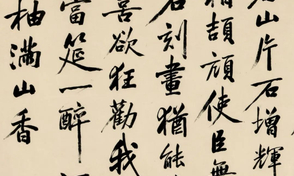 山片石增輝
頡頏使臣無
石刻畫猶能
喜欲狂勸我
當筵一醉
柚滿山香